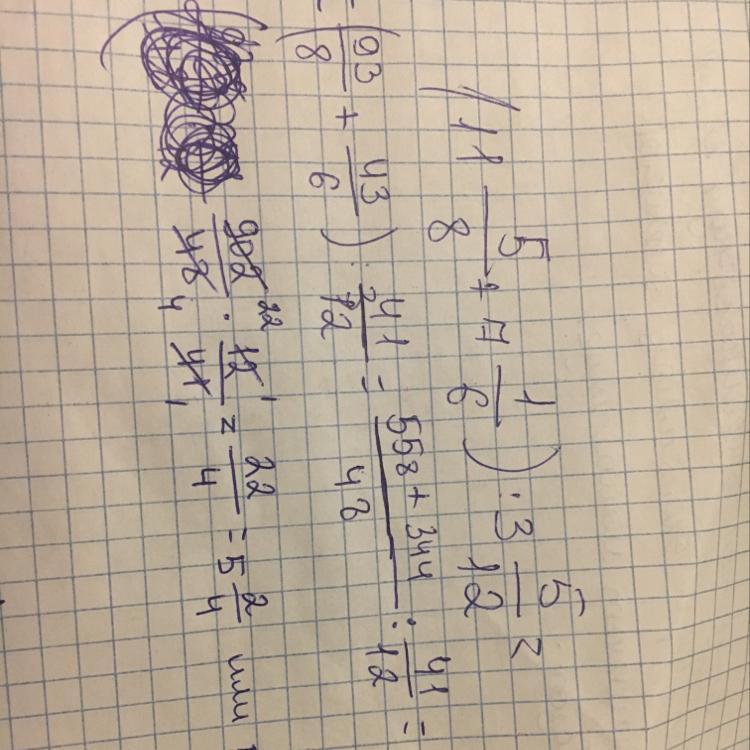 (11 5/8 + 7 1/6) : 3 5/12 =
= (93/8 + 43/6) : 41/12 = 558+344/48 : 41/12 =
902/48 22 4 · 12/41 1 1 = 22/4 = 5 2/4 или